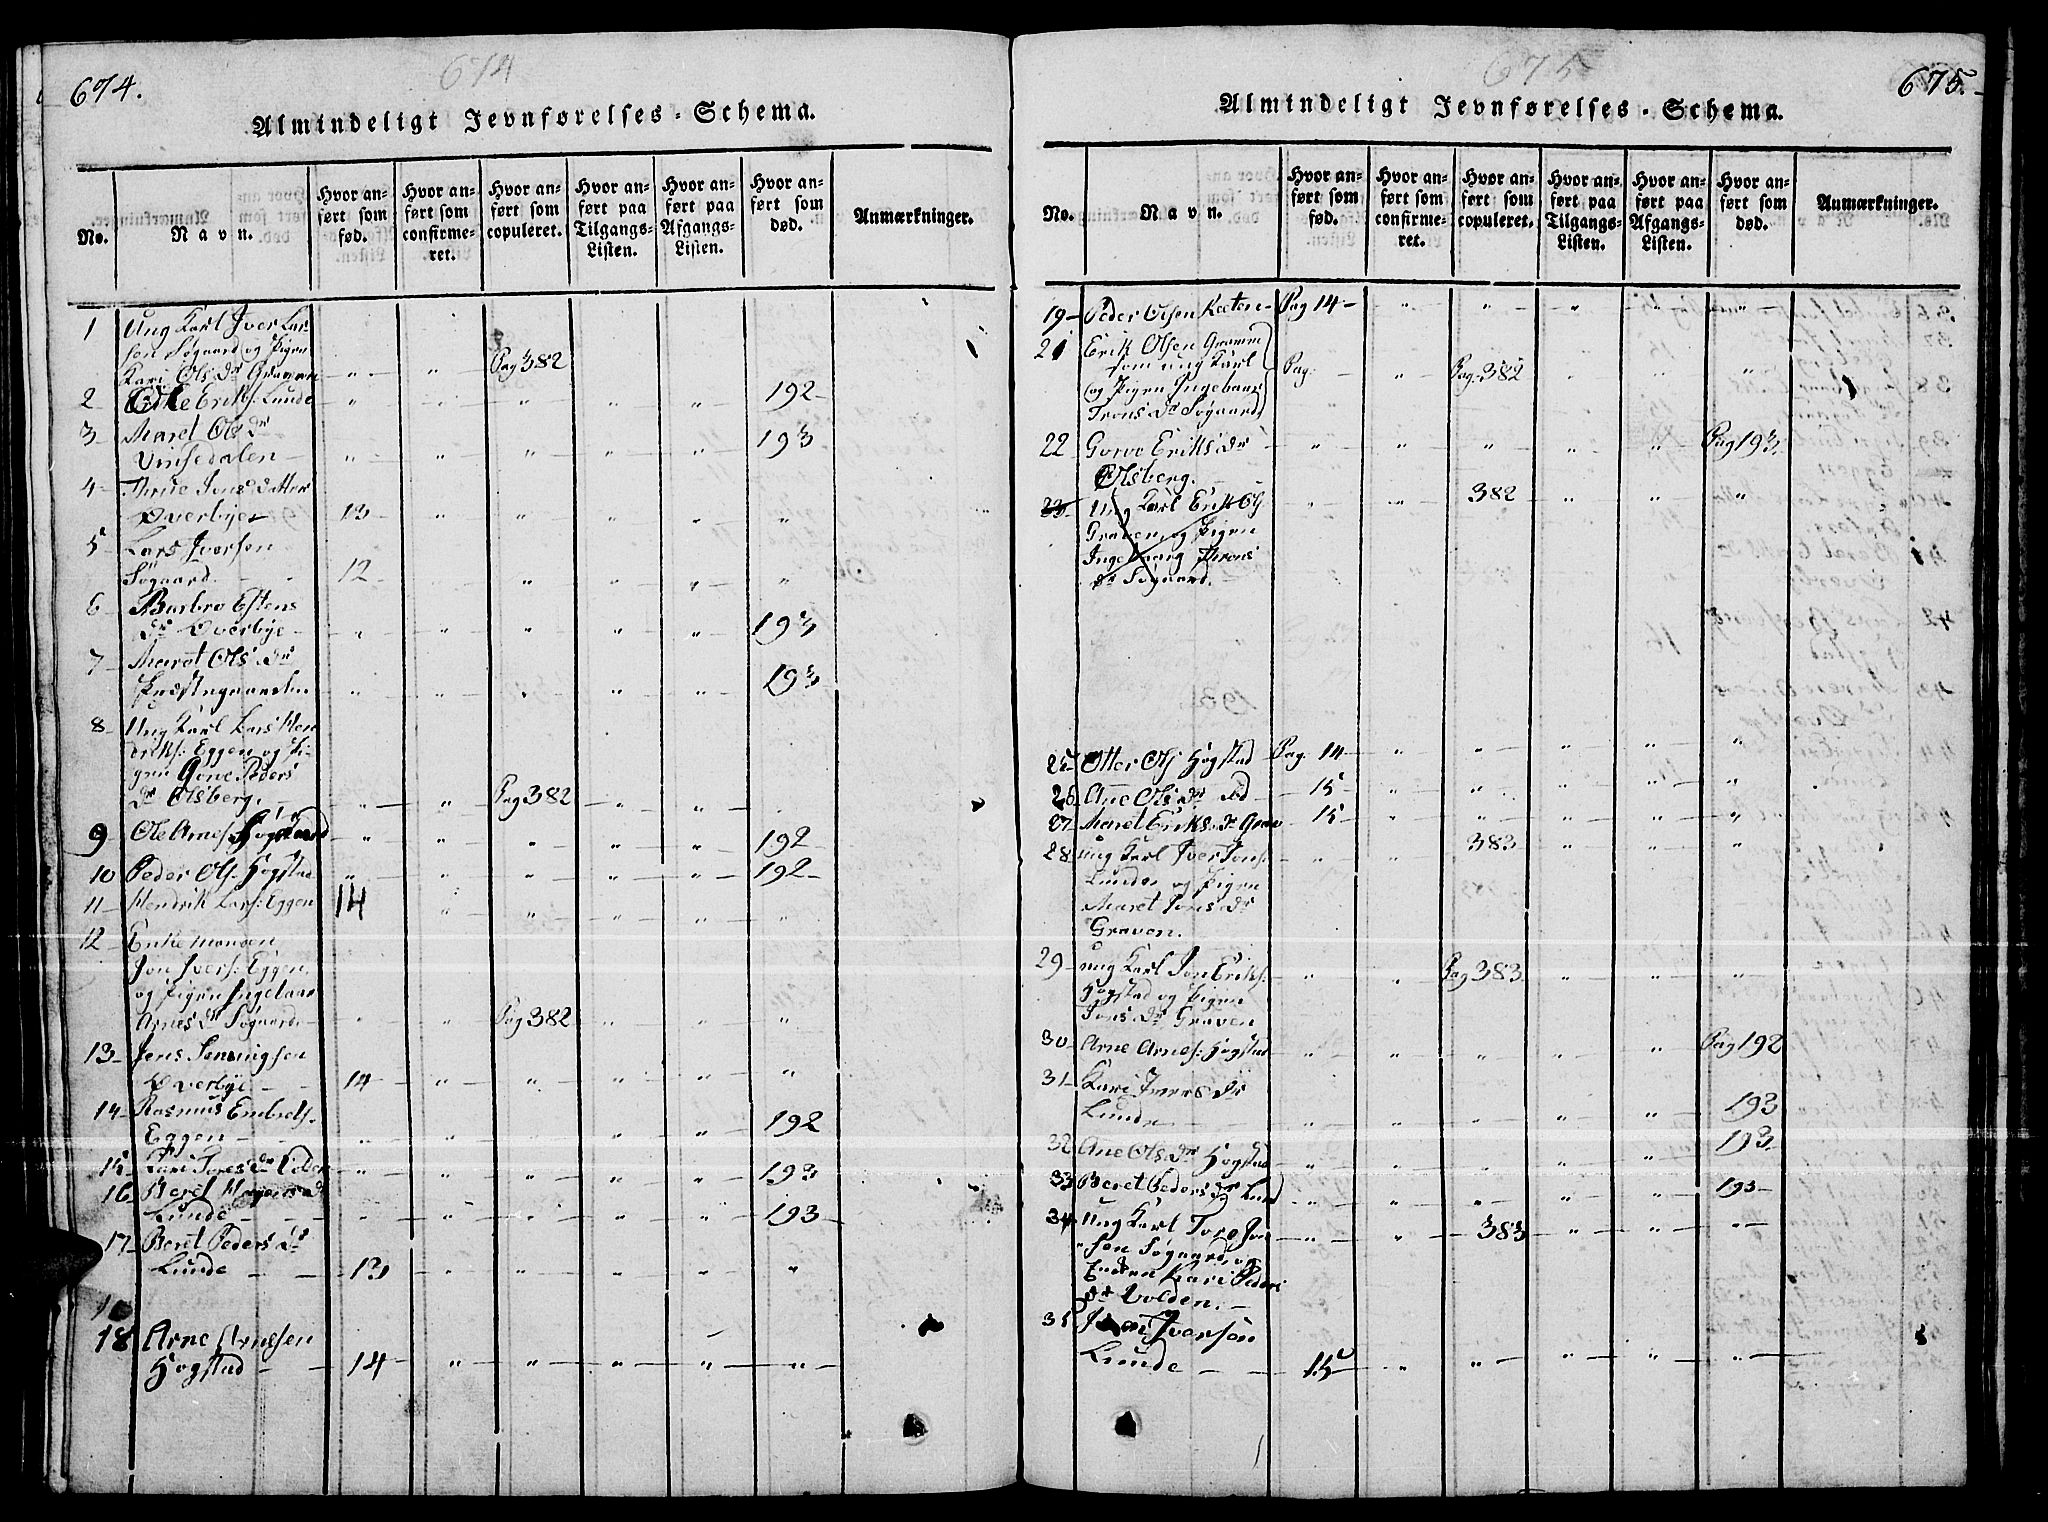 674.
674
Almindeligt Jevnførelses-Schema.
No.
Navn.
Hvor anført som fød.
Hvor anført som confirmeret.
Hvor anført som copuleret.
Hvor anført paa Tilgangs-Listen.
Hvor anført paa Afgangs-Listen.
Hvor anført som død.
Anmærkninger.
1 Ung Karl Iver Lar
sen Søgaard og Pigen
Kari Ols Dr Graven " " Pag 382
2 Erik: Lunde " " " " " 192
3 Maret Ols Dr
Vinsedalen " " " " " 193
4 Jons Datter
Overbye 13 " " " " "
5 Lars Iversen
Søgaard 12 " " "
6 Barbro Estens
Dr Overbye " " " " " 193
7 Maret Ols Dr
" " " " " 193
8 Ung Karl Lars Hen
driks: Eggen og Pi-
gen Gorve Peders
Dr Olsberg. " " Pag 382 " "
9 Ole Arnes: Høgstad " " " " " 192
10 Peder Ols: Høgstad " " " " " 192
11 Hendrik Lars: Eggen 14 " " " " "
12 Enkemanden
Jon Ivers: Eggen
og Pigen Ingebaar
Arnes Dr Søgaard " " Pag 382 " " "
13 Jens
Overbye 14 " " " " "
14 Rasmus Embrets:
Eggen " " " " " 192
15 Kari Tores Dr " " " " " 193
16 Beret Mogens Dr
Lunde " " " " " 193
17 Beret Peders Dr
Lunde 13 " " " " "
18 Arne Arnesen
Høgstad 14 " " " " "
675.
675
Almindeligt Jevnførelses-Schema.
No.
Navn.
Hvor anført som fød.
Hvor anført som confirmeret.
Hvor anført som copuleret.
Hvor anført paa Tilgangs-Listen.
Hvor anført paa Afgangs-Listen.
Hvor anført som død.
Anmærkninger.
19 Peder Olsen Pag 14 " " " " "
21 Erik Olsen
som ung Karl
og Pigen Ingebaar
Trons Dr Søgaard Pag. " Pag. 382 " " "
22 Gorve Eriks Dr
Olsberg. " " " " " Pag 193
23 Ung Karl Erik Ols
Graven, og Pigen
Ingebaarg Throns
Dr Søgaard. " " 382 " " "
25 Otter Ols Høgstad Pag. 14 " " " " "
26 Ane Ols Dr ibd 15 " " " " "
27 Maret Eriks Dr Grav 15 " " " " "
28 ung Karl Iver Jons:
Lunde og Pigen
Maret Jons Dr
Graven. " " 383 " " "
29 ung Karl Jon Eriks:
Høgstad og Pigen
Jons Dr Graven " " Pag 383 " " "
30 Arne Arnes: Høgstad " " " " " Pag 192
31 Kari Ivers Dr
Lunde " " " " " 193
32 Ane Ols Dr Høgstad " " " " " 193
33 Beret Peders Dr Lund " " " " " 193
34 Ung Karl Tore Jon
sen Søgaard, og
Enken Kari Peders
Dr Volden. " " 383 " " "
35 Iversen
Lunde 15 " " " " "